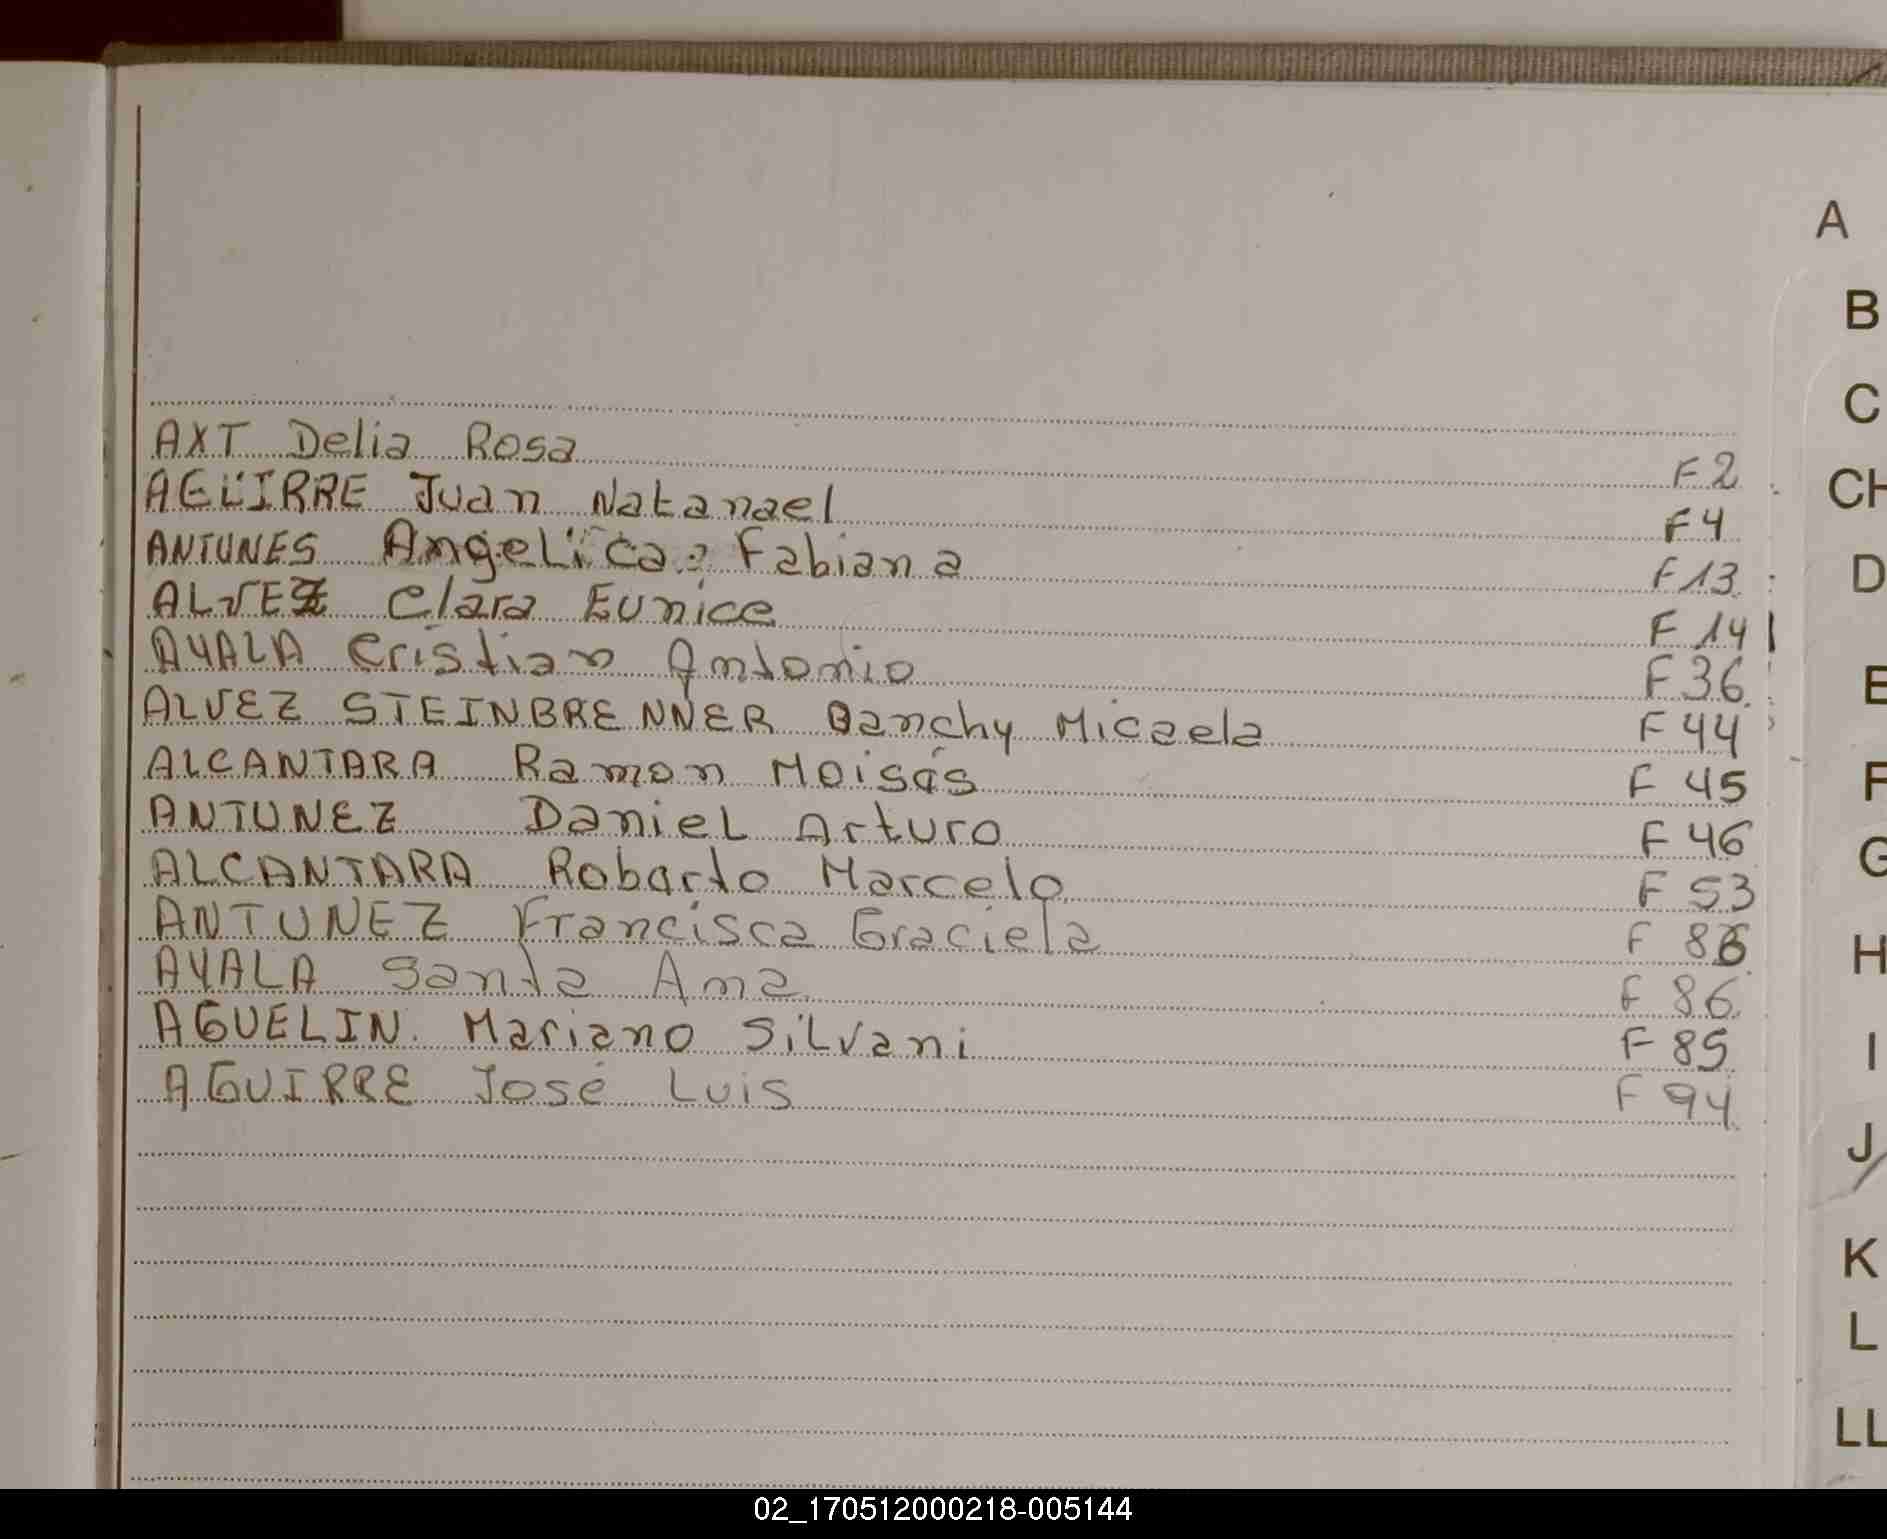 AXT Delia Rosa F 2
AGUIRRE Juan Natanael F 4
ANTUNES Angelica Fabiana F 13
ALVEZ Clara Eunice F 14
AYALA Cristian Antonio F 36
ALVEZ STEINBRENNER Danchy Micaela F 44
ALCANTARA Ramon Moisés F 45
ANTUNEZ Daniel Arturo F 46
ALCANTARA Roberto Marcelo F 53
ANTUNEZ Francisca Graciela F 86
AYALA Santa Ana F 86
AGUELIN. Mariano Silvani F 85
AGUIRRE José Luis F 94
A
B
C
CH
D
E
F
G
H
I
J
K
L
LL
02_170512000218-005144